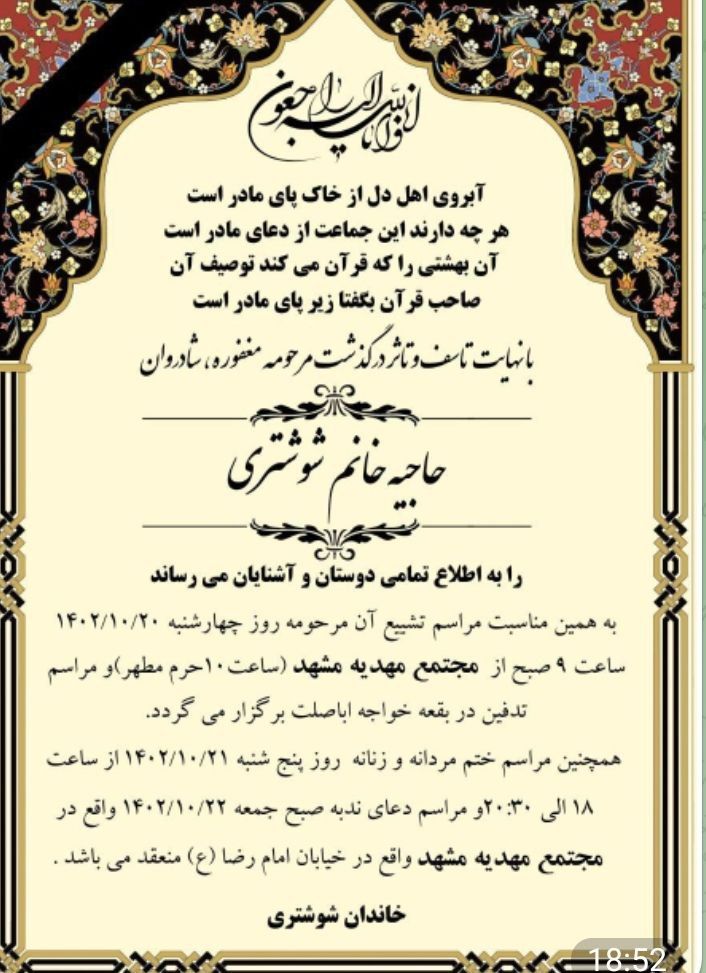 انا لله و انا الیه راجعون
آبروی اهل دل از خاک پای مادر است
هر چه دارند این جماعت از دعای مادر است
آن بهشتی را که قرآن می کند توصیف آن
صاحب قرآن بگفتا زیر پای مادر است
بانهایت تاسف و تاثر درگذشت مرحومه مغفوره، شادروان
حاجیه خانم شوشتری
را به اطلاع تمامی دوستان و آشنایان می رساند
به همین مناسبت مراسم تشییع آن مرحومه روز چهارشنبه ۱۴۰۲/۱۰/۲۰
ساعت ۹ صبح از مجتمع مهدیه مشهد (ساعت۱۰حرم مطهر)و مراسم
تدفین در بقعه خواجه اباصلت برگزار می گردد.
همچنین مراسم ختم مردانه و زنانه روز پنج شنبه ۱۴۰۲/۱۰/۲۱ از ساعت
۱۸ الی ۲۰:۳۰و مراسم دعای ندبه صبح جمعه ۱۴۰۲/۱۰/۲۲ واقع در
مجتمع مهدیه مشهد واقع در خیابان امام رضا (ع) منعقد می باشد .
خاندان شوشتری
18:52